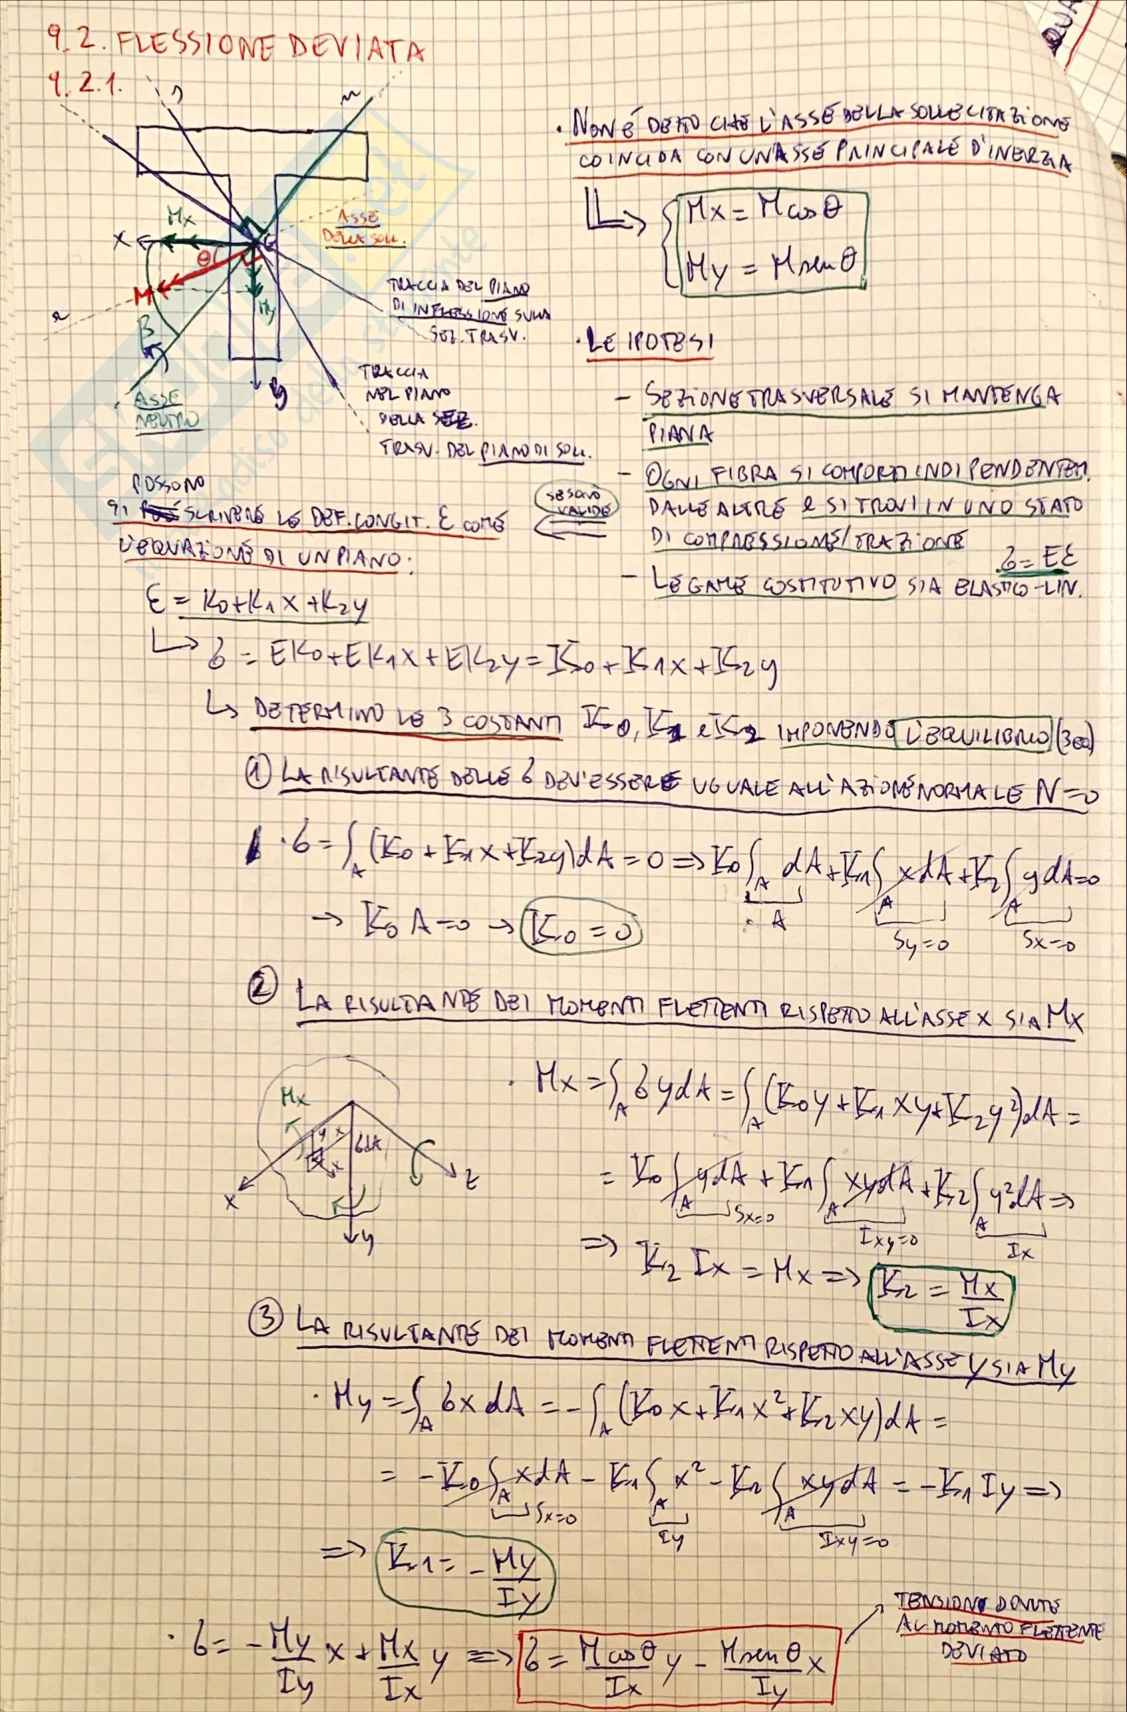 9.2. FLESSIONE DEVIATA
9.2.1.
n
ASSE
DELLA SOLL.
Mx
X
G
θ
M
My
β
ASSE
NEUTRO
y
TRACCIA DEL PIANO
DI INFLESSIONE SULLA
SEZ. TRASV.
TRACCIA
NEL PIANO
DELLA SEZ.
TRASV. DEL PIANO DI SOLL.
· NON È DETTO CHE L'ASSE DELLA SOLLECITAZIONE
COINCIDA CON UN'ASSE PRINCIPALE D'INERZIA
Mx = M cos θ
My = M sen θ
· LE IPOTESI
- SEZIONE TRASVERSALE SI MANTENGA
PIANA
- OGNI FIBRA SI COMPORTI INDIPENDENTEM.
DALLE ALTRE E SI TROVI IN UNO STATO
DI COMPRESSIONE/TRAZIONE
- LEGAME COSTITUTIVO SIA ELASTICO-LIN.
σ = Eε
SE SONO
VALIDE
POSSONO
SCRIVERE LE DEF. LONGIT. ε COME
L'EQUAZIONE DI UN PIANO:
ε = K0 + K1 x + K2 y
↳ σ = EK0 + EK1 x + EK2 y = K0 + K1 x + K2 y
↳ DETERMINO LE 3 COSTANTI K0, K1 e K2 IMPONENDO L'EQUILIBRIO (3 EQ)
① LA RISULTANTE DELLE σ DEV'ESSERE UGUALE ALL'AZIONE NORMALE N=0
· σ = ∫A (K0 + K1 x + K2 y) dA = 0 ⇒ K0 ∫A dA + K1 ∫A x dA + K2 ∫A y dA = 0
A Sy=0 Sx=0
→ K0 A = 0 → K0 = 0
② LA RISULTANTE DEI MOMENTI FLETTENTI RISPETTO ALL'ASSE X SIA Mx
Mx
y x
σdA
X
z
y
· Mx = ∫A σ y dA = ∫A (K0 y + K1 xy + K2 y²) dA =
= K0 ∫A y dA + K1 ∫A xy dA + K2 ∫A y² dA ⇒
Sx=0 Ixy=0 Ix
⇒ K2 Ix = Mx ⇒ K2 = Mx/Ix
③ LA RISULTANTE DEI MOMENTI FLETTENTI RISPETTO ALL'ASSE Y SIA My
· My = ∫A σ x dA = -∫A (K0 x + K1 x² + K2 xy) dA =
= -K0 ∫A x dA - K1 ∫A x² - K2 ∫A xy dA = -K1 Iy ⇒
Sx=0 Iy Ixy=0
⇒ K1 = -My/Iy
· σ = -My/Iy x + Mx/Ix y ⇒ σ = M cos θ/Ix y - M sen θ/Iy x
TENSIONI DOVUTE
AL MOMENTO FLETTENTE
DEVIATO